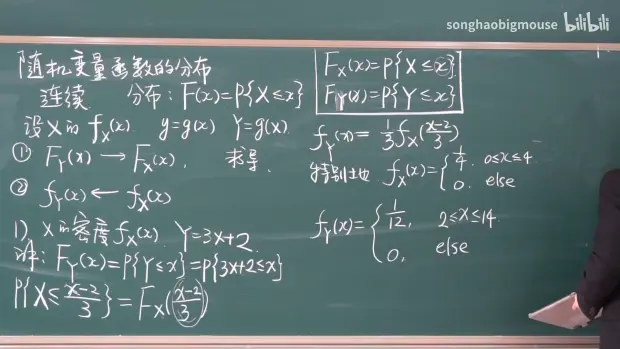 songhaobigmouse bilibili
随机变量函数的分布
连续 分布：F(x)=P{X≤x}
设X的f_X(x) y=g(x) Y=g(X)
① F_Y(x) → F_X(x), 求导.
② f_Y(x) ← f_X(x)
1) X的密度f_X(x). Y=3X+2.
译: F_Y(x)=P{Y≤x}=P{3X+2≤x}
P{X≤\frac{x-2}{3}}=F_X(\frac{x-2}{3})
F_X(x)=P{X≤x}
F_Y(x)=P{Y≤x}
f_Y(x)=\frac{1}{3}f_X(\frac{x-2}{3})
特别地 f_X(x)={\frac{1}{4}, 0≤x≤4
0, else
f_Y(x)={\frac{1}{12}, 2≤x≤14
0, else